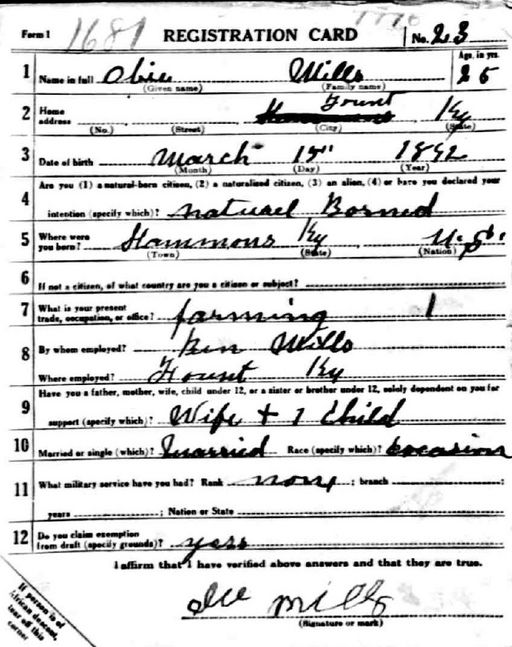 Form 1 1687 REGISTRATION CARD No. 23
1 Name in full Obie Mills Age, in yrs. 25
(Given name) (Family name)
2 Home address Fount Ky
(No.) (Street) (City) (State)
3 Date of birth March 15" 1892
(Month) (Day) (Year)
4 Are you (1) a natural-born citizen, (2) a naturalized citizen, (3) an alien, (4) or have you declared your
intention (specify which)? natural Borned
5 Where were you born? Hammons Ky U.S.
(Town) (State) (Nation)
6 If not a citizen, of what country are you a citizen or subject?
7 What is your present trade, occupation, or office? farming 1
8 By whom employed? Ben Mills
Where employed? Fount Ky
9 Have you a father, mother, wife, child under 12, or a sister or brother under 12, solely dependent on you for
support (specify which)? Wife + 1 Child
10 Married or single (which)? Married Race (specify which)? Cocasion
11 What military service have you had? Rank none ; branch ;
years ; Nation or State
12 Do you claim exemption from draft (specify grounds)? yess
I affirm that I have verified above answers and that they are true.
Mills
(Signature or mark)
If person is of
African descent,
tear off this
corner